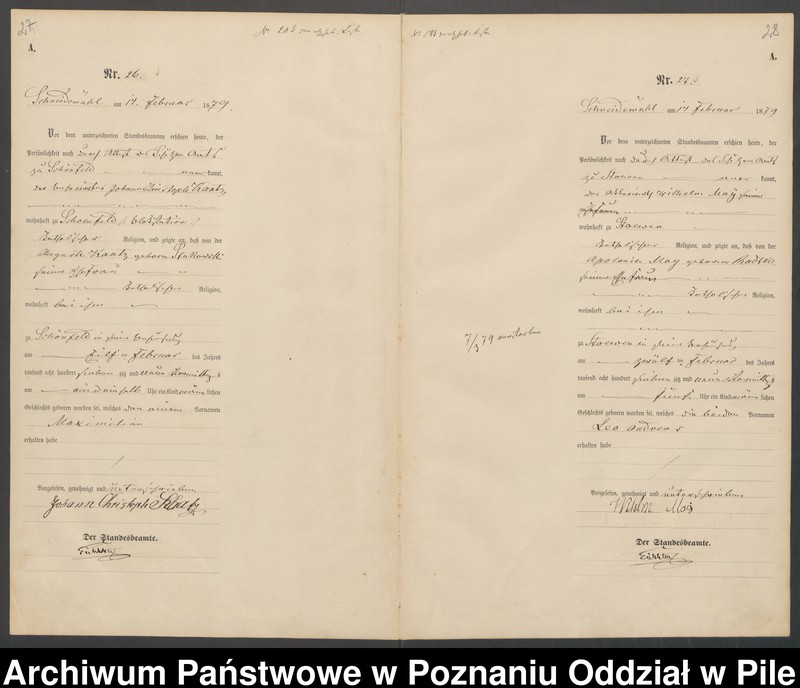 27.
A.
Nr. 26.
Schneidemühl am 14. Februar 1879.
Vor dem unterzeichneten Standesbeamten erschien heute, der
Persönlichkeit nach durch Attest des Schulzen Amts
zu Schönfeld kannt,
Johann Christoph Kaatz
wohnhaft zu Schoenfeld
katholischer Religion, und zeigte an, daß von der
Auguste Kaatz geborene
seiner Ehefrau
katholischer Religion,
wohnhaft bei ihm
zu Schönfeld in seiner Behausung
am elf ten Februar des Jahres
tausend acht hundert sieben zig und neun Vormittags
um Uhr ein Kind männlichen
Geschlechts geboren worden sei, welches den einen Vornamen
Maximilian
erhalten habe
Vorgelesen, genehmigt und unterschrieben
Johann Christoph Kaatz
Der Standesbeamte.
28
A.
Nr. 27.
Schneidemühl am 14 Februar 1879
Vor dem unterzeichneten Standesbeamten erschien heute, der
Persönlichkeit nach durch Attest des Schulzen Amts
zu Stoewen kannt,
der Wilhelm May
wohnhaft zu Stoewen
katholischer Religion, und zeigte an, daß von der
Apolonia May geborene Radtke
seiner Ehefrau
katholischer Religion,
wohnhaft bei ihm
7/3 79
zu Stoewen in seiner Behausung
am zwölf ten Februar des Jahres
tausend acht hundert sieben zig und neun Vormittags
um fünf Uhr ein Kind männlichen
Geschlechts geboren worden sei, welches die beiden Vornamen
Leo Andreas
erhalten habe
Vorgelesen, genehmigt und unterschrieben
Der Standesbeamte.
Archiwum Państwowe w Poznaniu Oddział w Pile